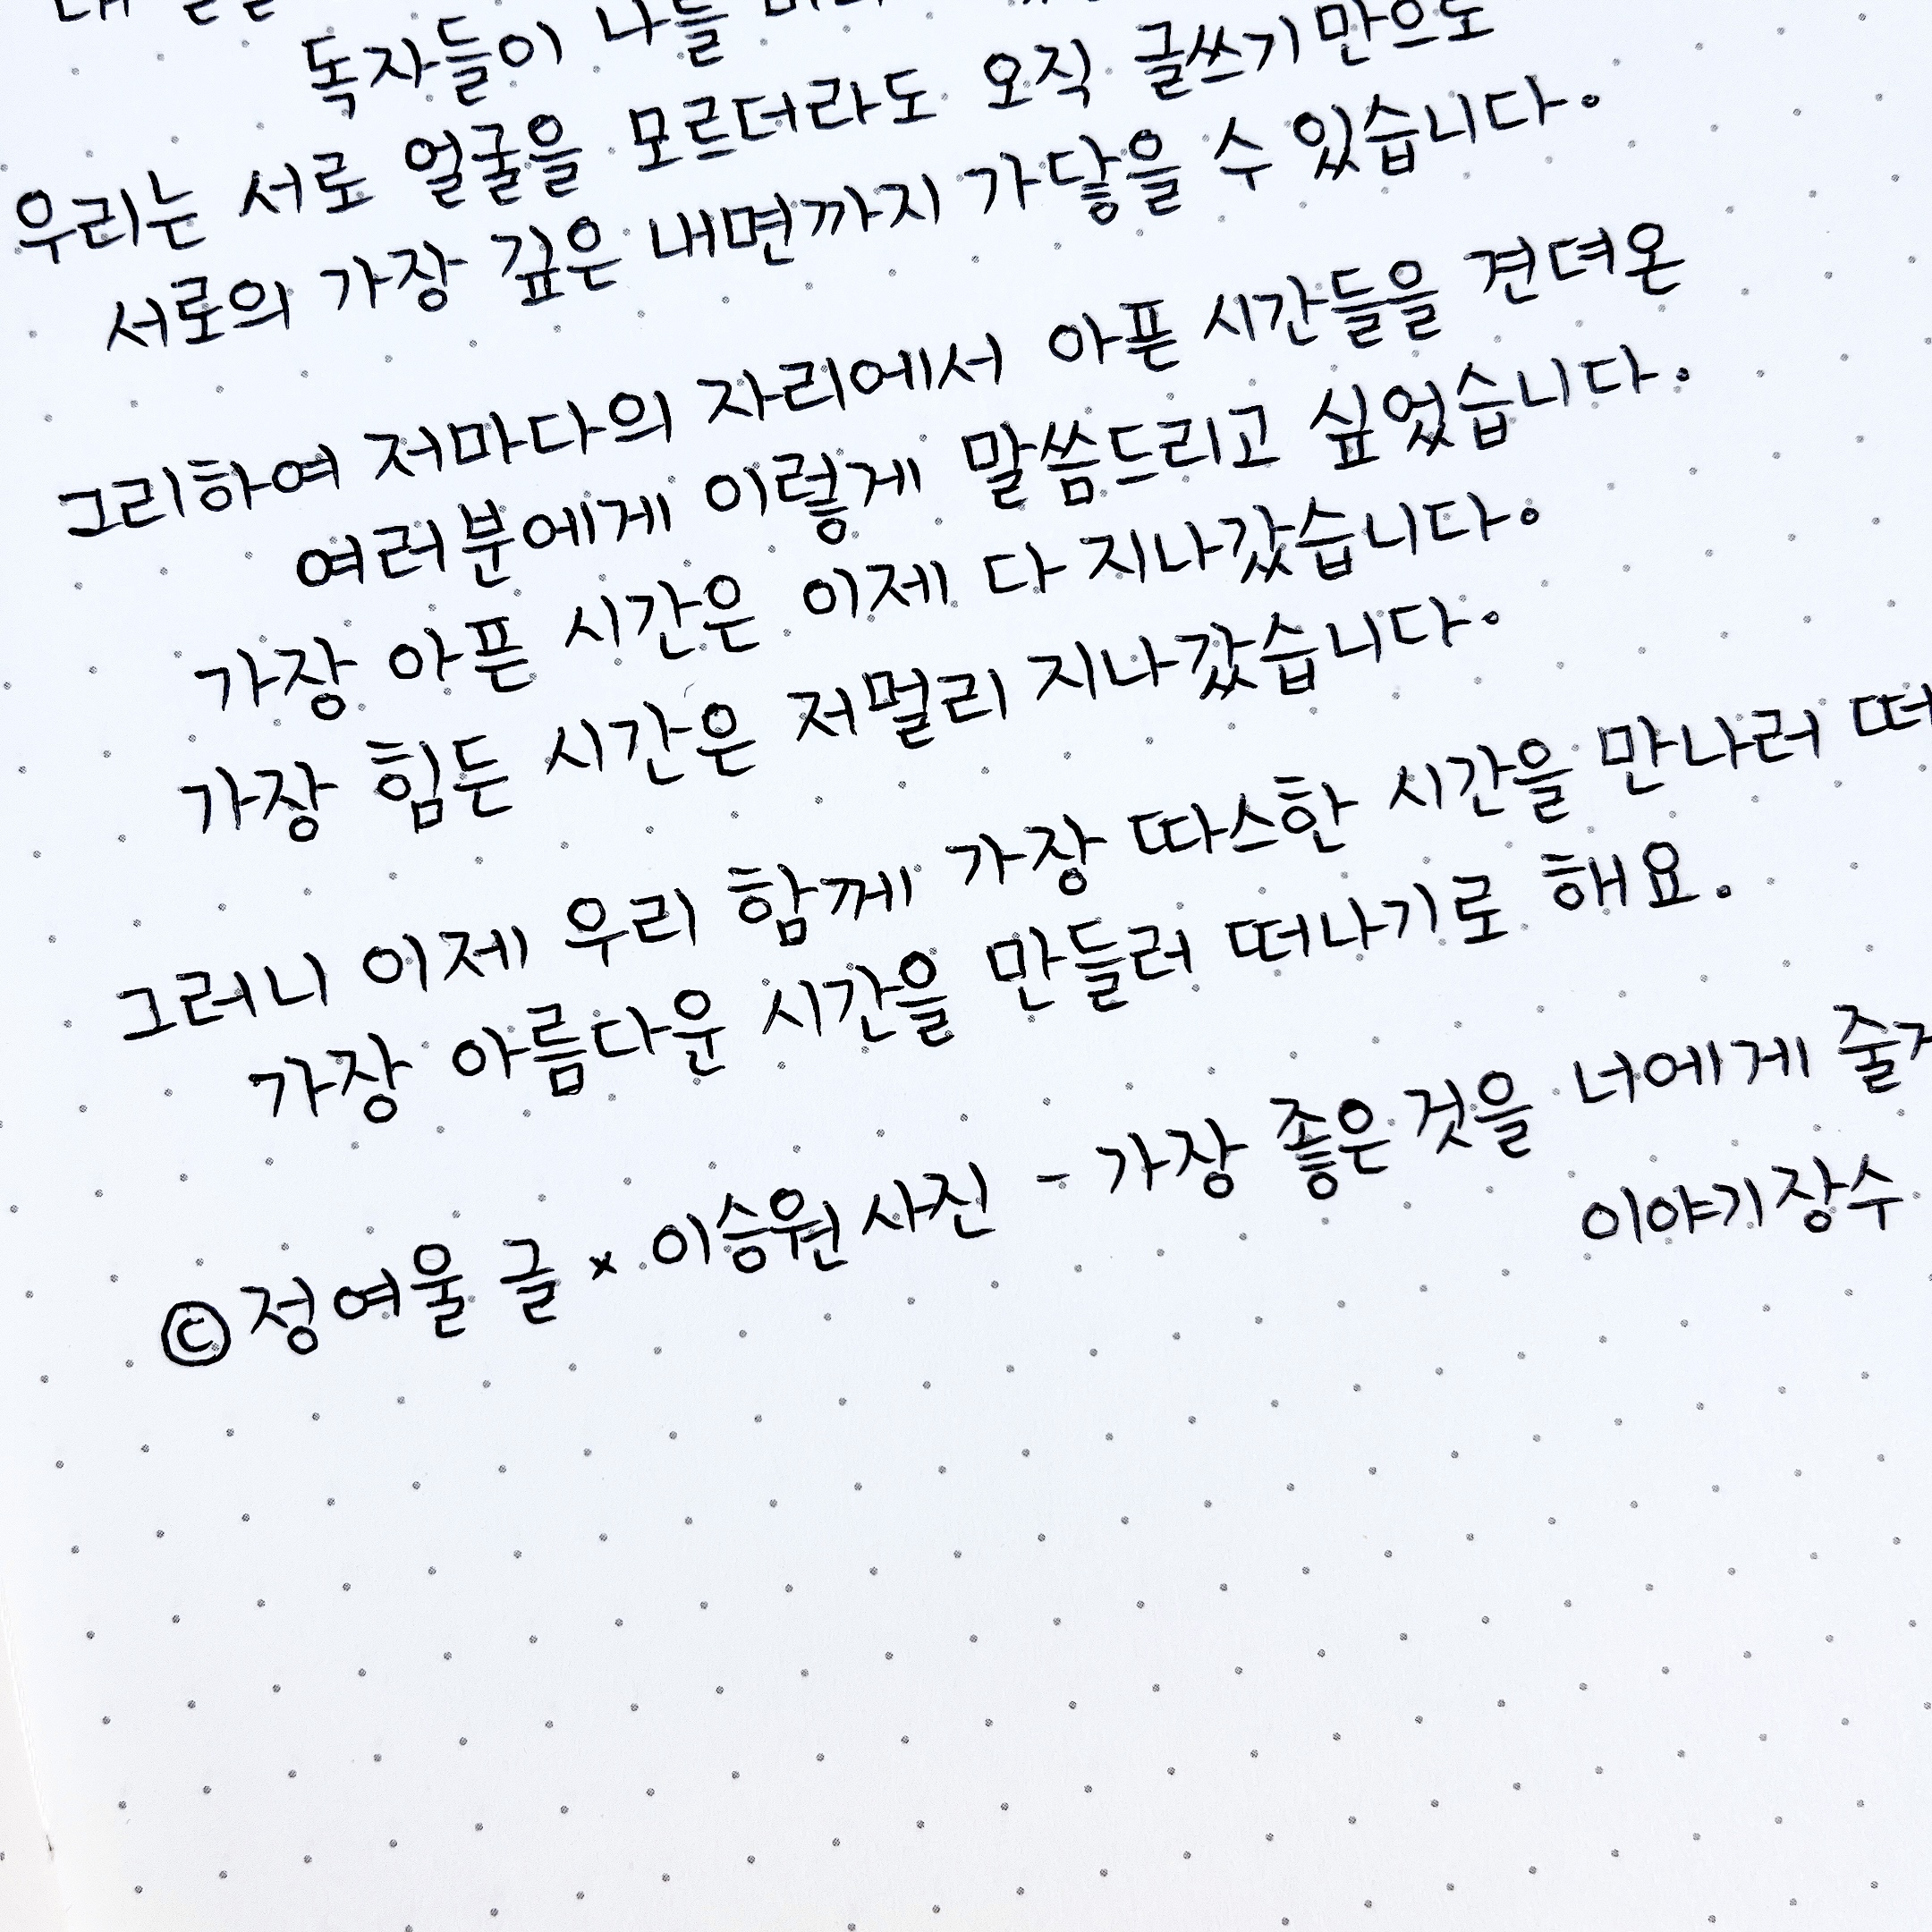 독자들이 나를
우리는 서로 얼굴을 모르더라도 오직 글쓰기만으로
서로의 가장 깊은 내면까지 가닿을 수 있습니다.
그리하여 저마다의 자리에서 아픈 시간들을 견뎌온
여러분에게 이렇게 말씀드리고 싶었습니다.
가장 아픈 시간은 이제 다 지나갔습니다.
가장 힘든 시간은 저멀리 지나갔습니다.
그러니 이제 우리 함께 가장 따스한 시간을 만나러 떠
가장 아름다운 시간을 만들러 떠나기로 해요.
©정여울 글 × 이승원 사진 - 가장 좋은 것을 너에게 줄게
이야기장수